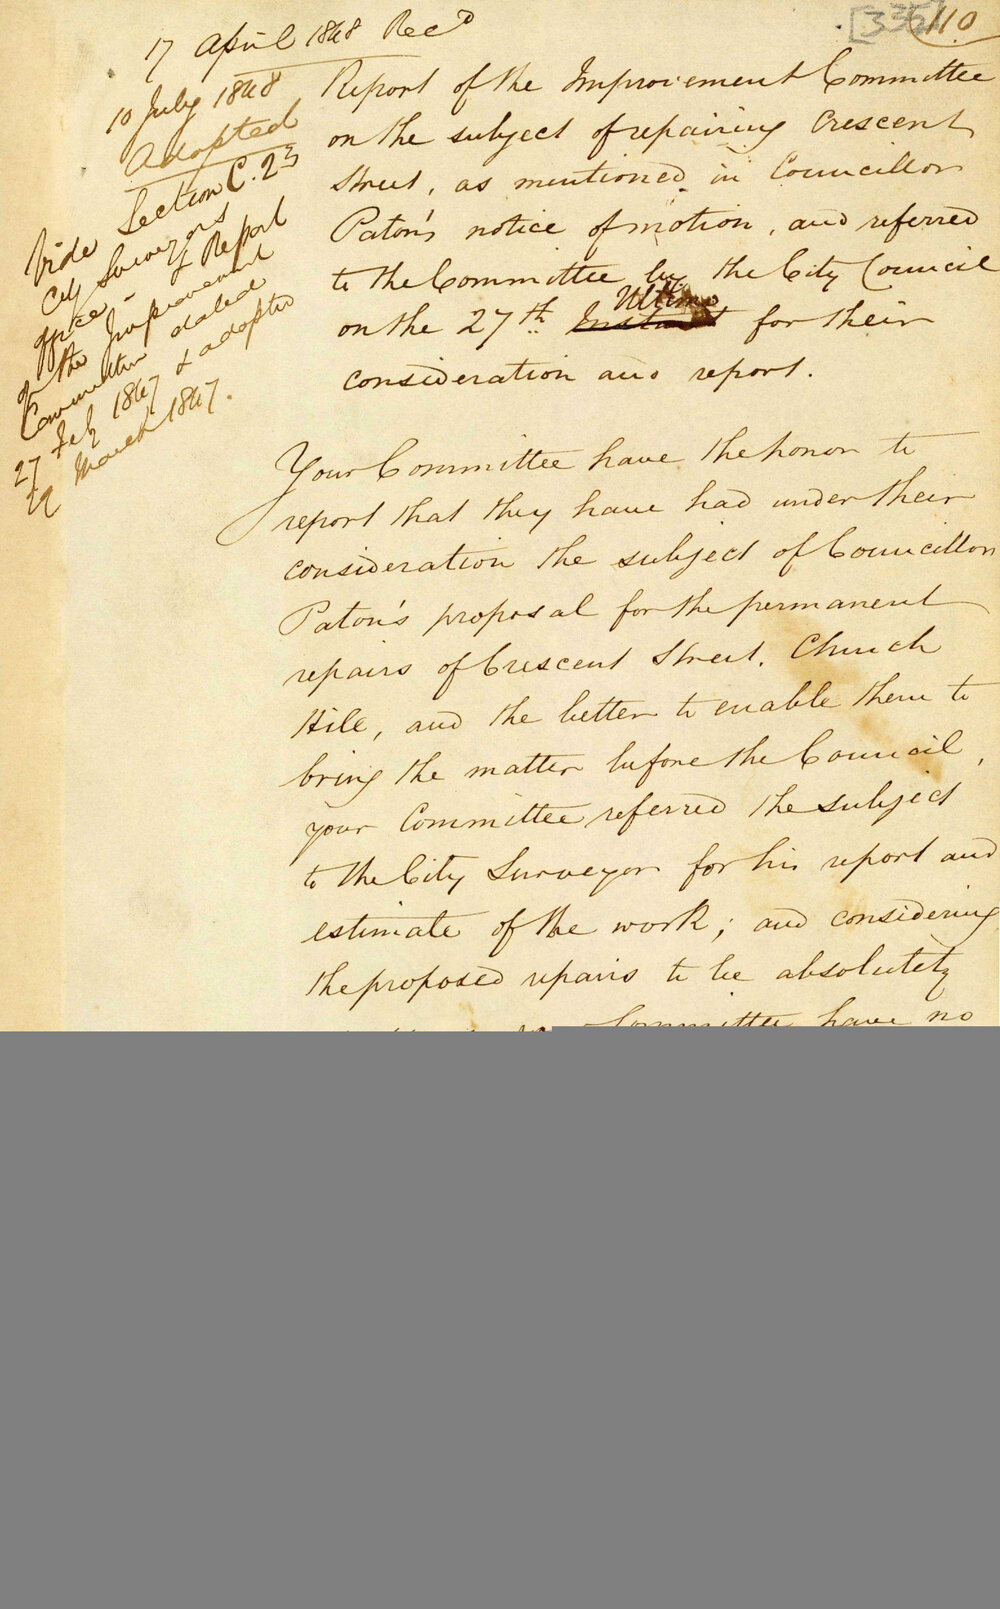 [335] 110
17 April 1848 Recd
10 July 1848
Adopted
Vide Section C. 23
City Surveyors
office & Report
of the Improvement
Committee dated
27 Feby 1847 & adopted
March 1847.
Report of the Improvement Committee
on the subject of repairing Crescent
Street, as mentioned in Councillor
Paton's notice of motion, and referred
to the Committee by the City Council
on the 27th Instant Ultimo for their
consideration and report.
Your Committee have the honor to
report that they have had under their
consideration the subject of Councillor
Paton's proposal for the permanent
repairs of Crescent Street, Church
Hill, and the better to enable them to
bring the matter before the Council,
your Committee referred the subject
to the City Surveyor for his report and
estimate of the work; and considering
the proposed repairs to be absolutely
Committee have no